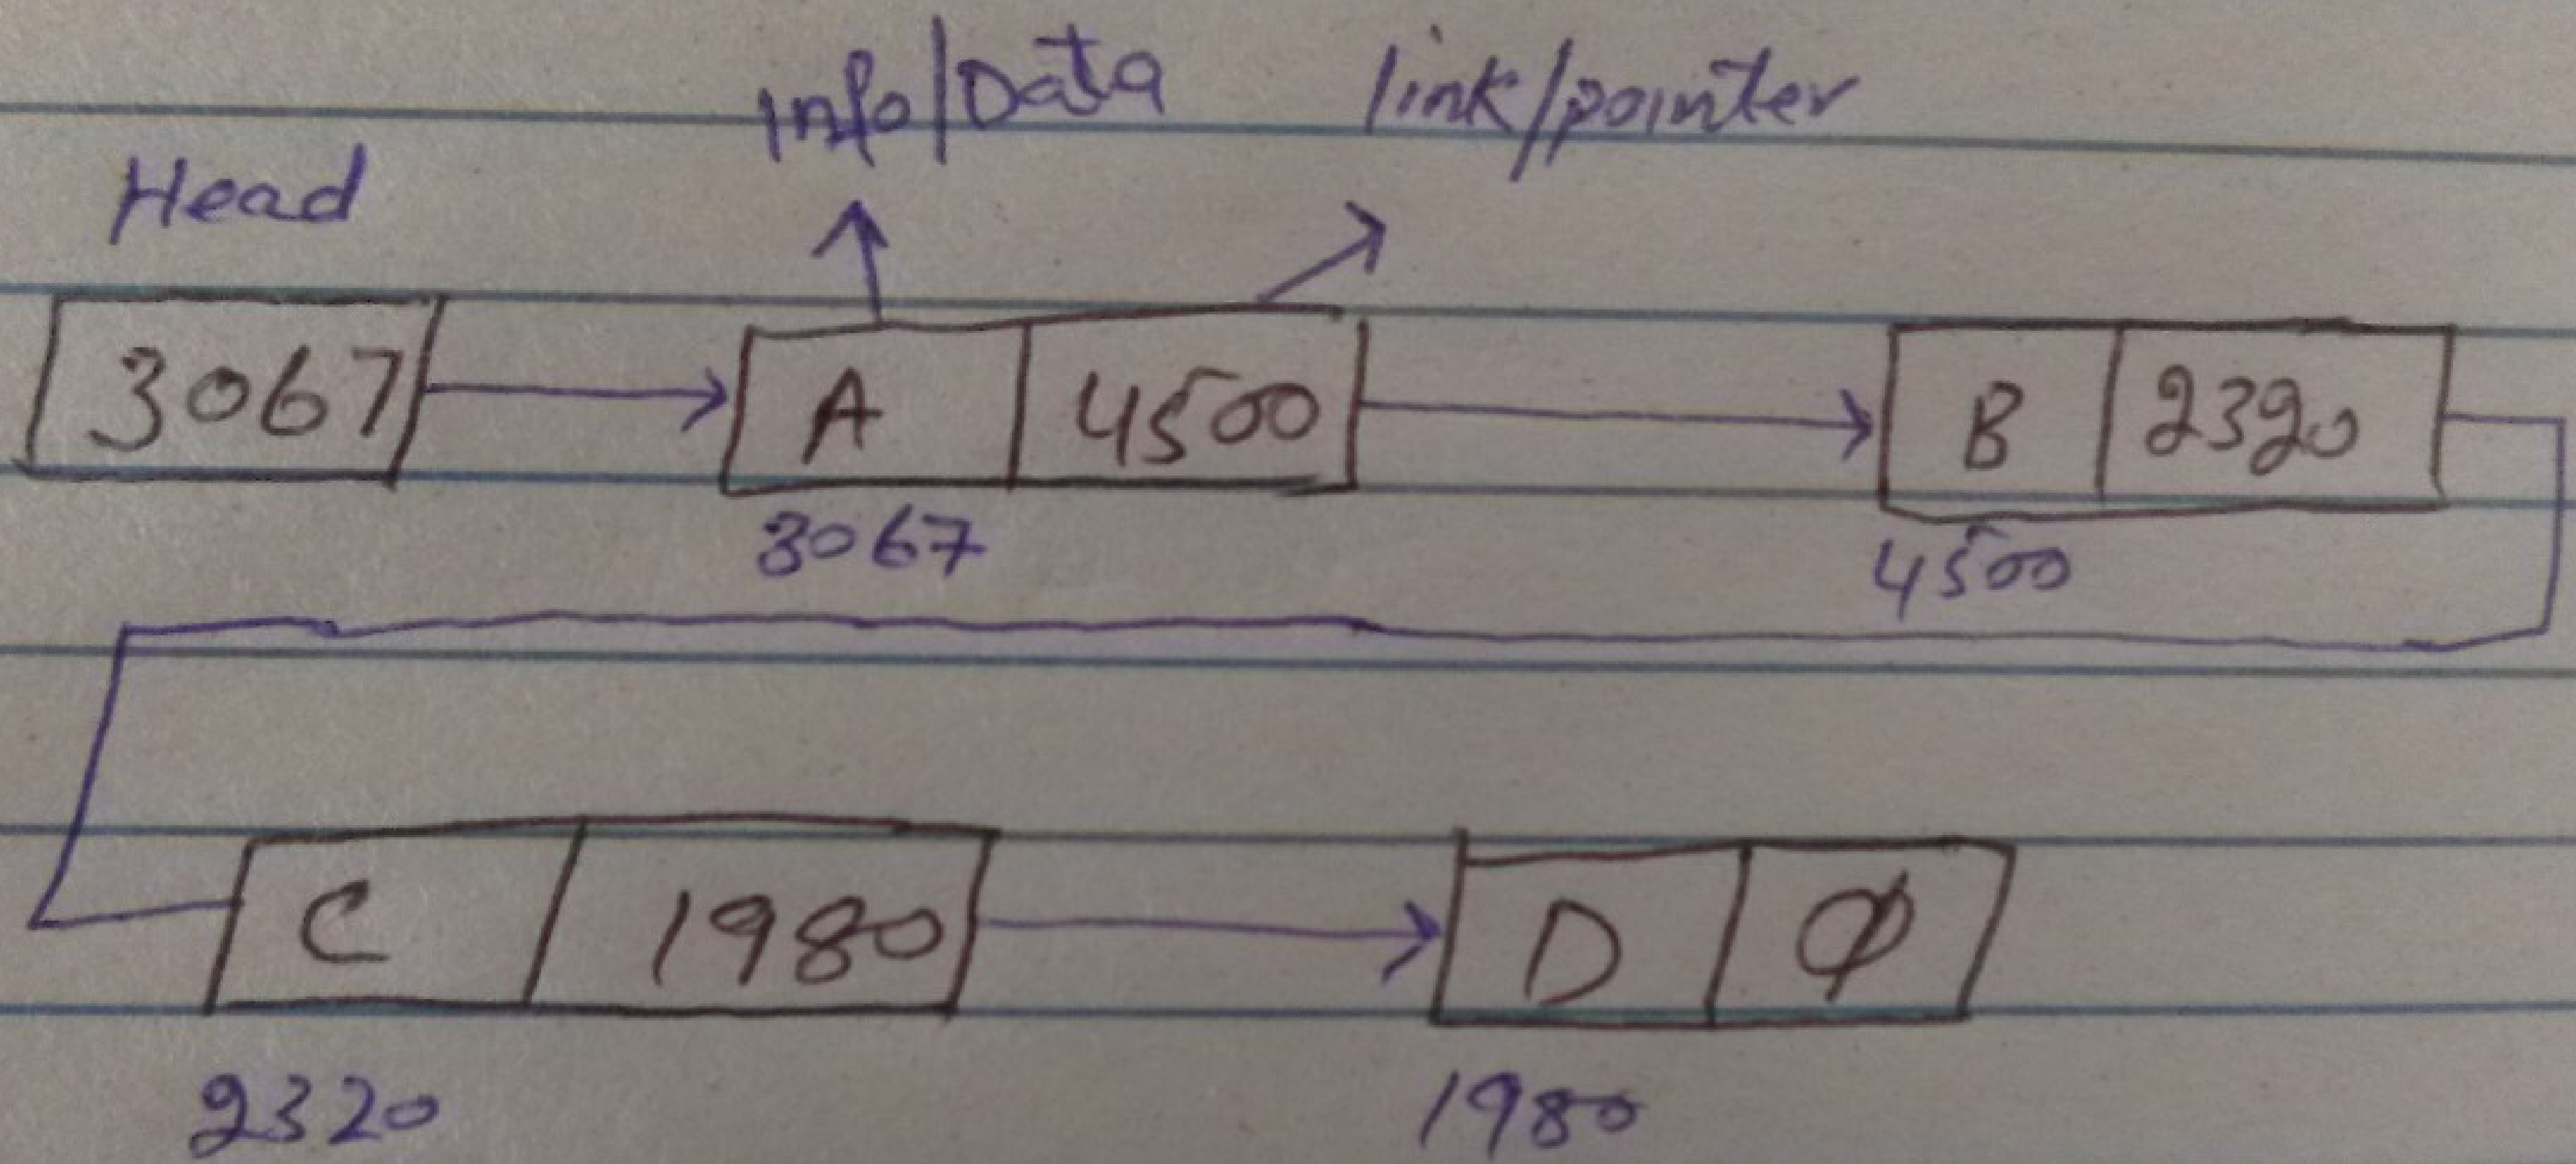 Info/Data link/pointer
Head
3067 A 4500 B 2320
3067 4500
C 1980 D Φ
2320 1980